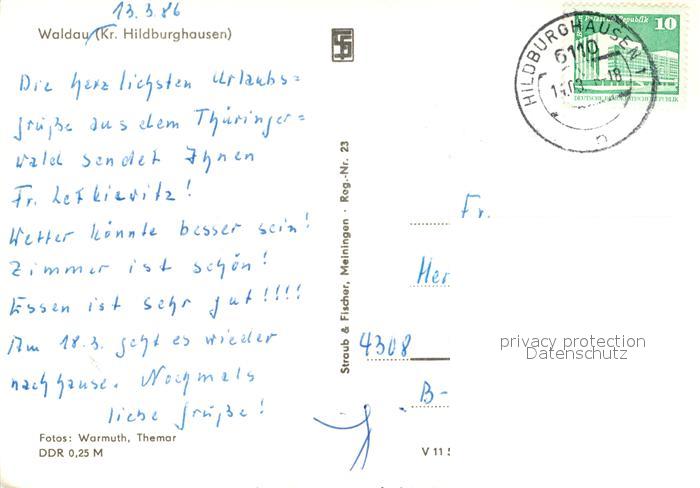 13.3.86
Waldau (Kr. Hildburghausen)
Die herzlichsten Urlaubs=
grüße aus dem Thüringer=
wald sendet Ihnen
Fr.
Wetter könnte besser sein!
Zimmer ist schön!
Essen ist sehr gut!!!!
Am 18.3. geht es wieder
nachhause. Nochmals
liebe Grüße!
Fotos: Warmuth, Themar
DDR 0,25 M
Straub & Fischer, Meiningen · Reg.-Nr. 23
HILDBURGHAUSEN 1
6110
10
DEUTSCHE DEMOKRATISCHE REPUBLIK
Fr.
Her
4308
B-
V 11 5
privacy protection
Datenschutz